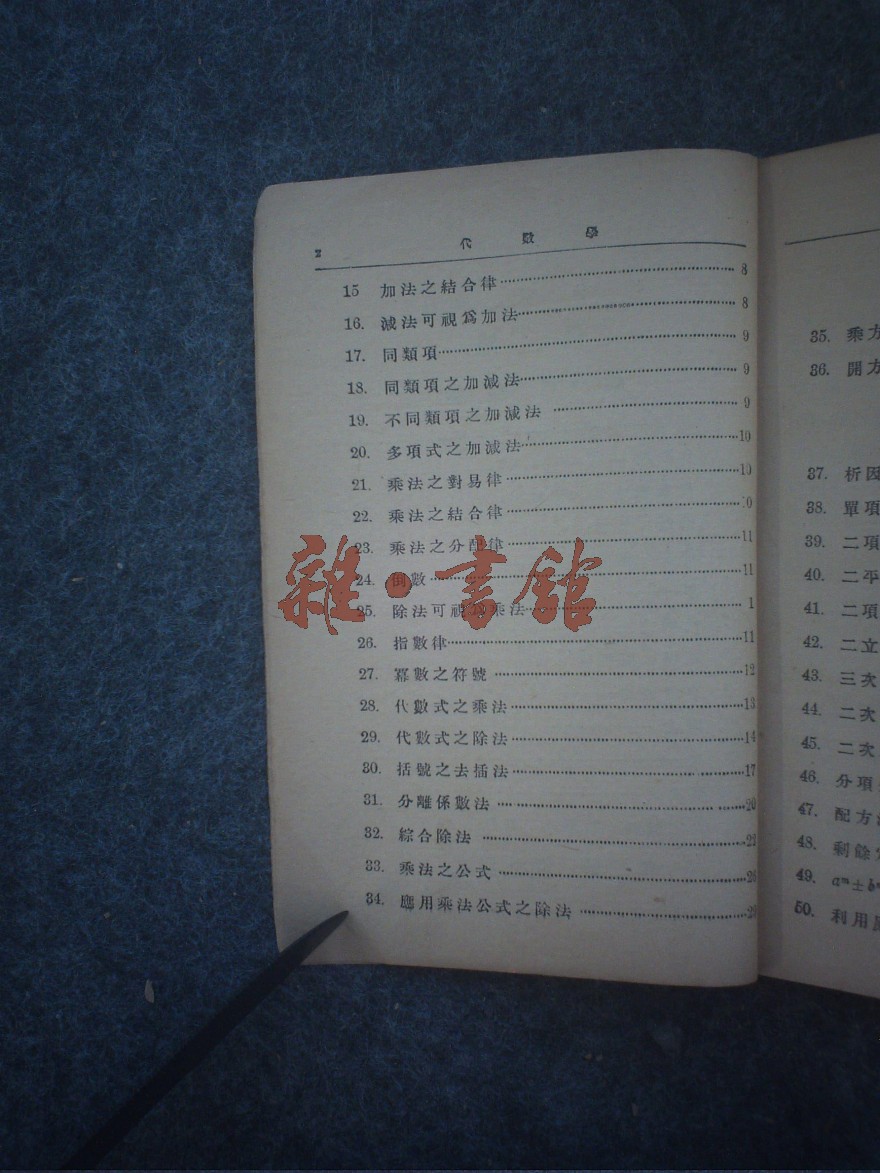 2 代數學
15 加法之結合律 8
16. 減法可視爲加法 8
17. 同類項 9
18. 同類項之加減法 9
19. 不同類項之加減法 9
20. 多項式之加減法 10
21. 乘法之對易律 10
22. 乘法之結合律 0
23. 乘法之分配律 11
24. 倒數 11
25. 除法可視爲乘法 1
26. 指數律 11
27. 冪數之符號 12
28. 代數式之乘法 13
29. 代數式之除法 14
30. 括號之去插法 17
31. 分離係數法 20
32. 綜合除法 22
33. 乘法之公式 26
34. 應用乘法公式之除法 29
雜·書館
35. 乘方
36. 開方
37. 析因
38. 單項
39. 二項
40. 二平
41. 二項
42. 二立
43. 三次
44. 二次
45. 二次
46. 分項
47. 配方
48. 剩餘
49. aⁿ±bⁿ
50. 利用